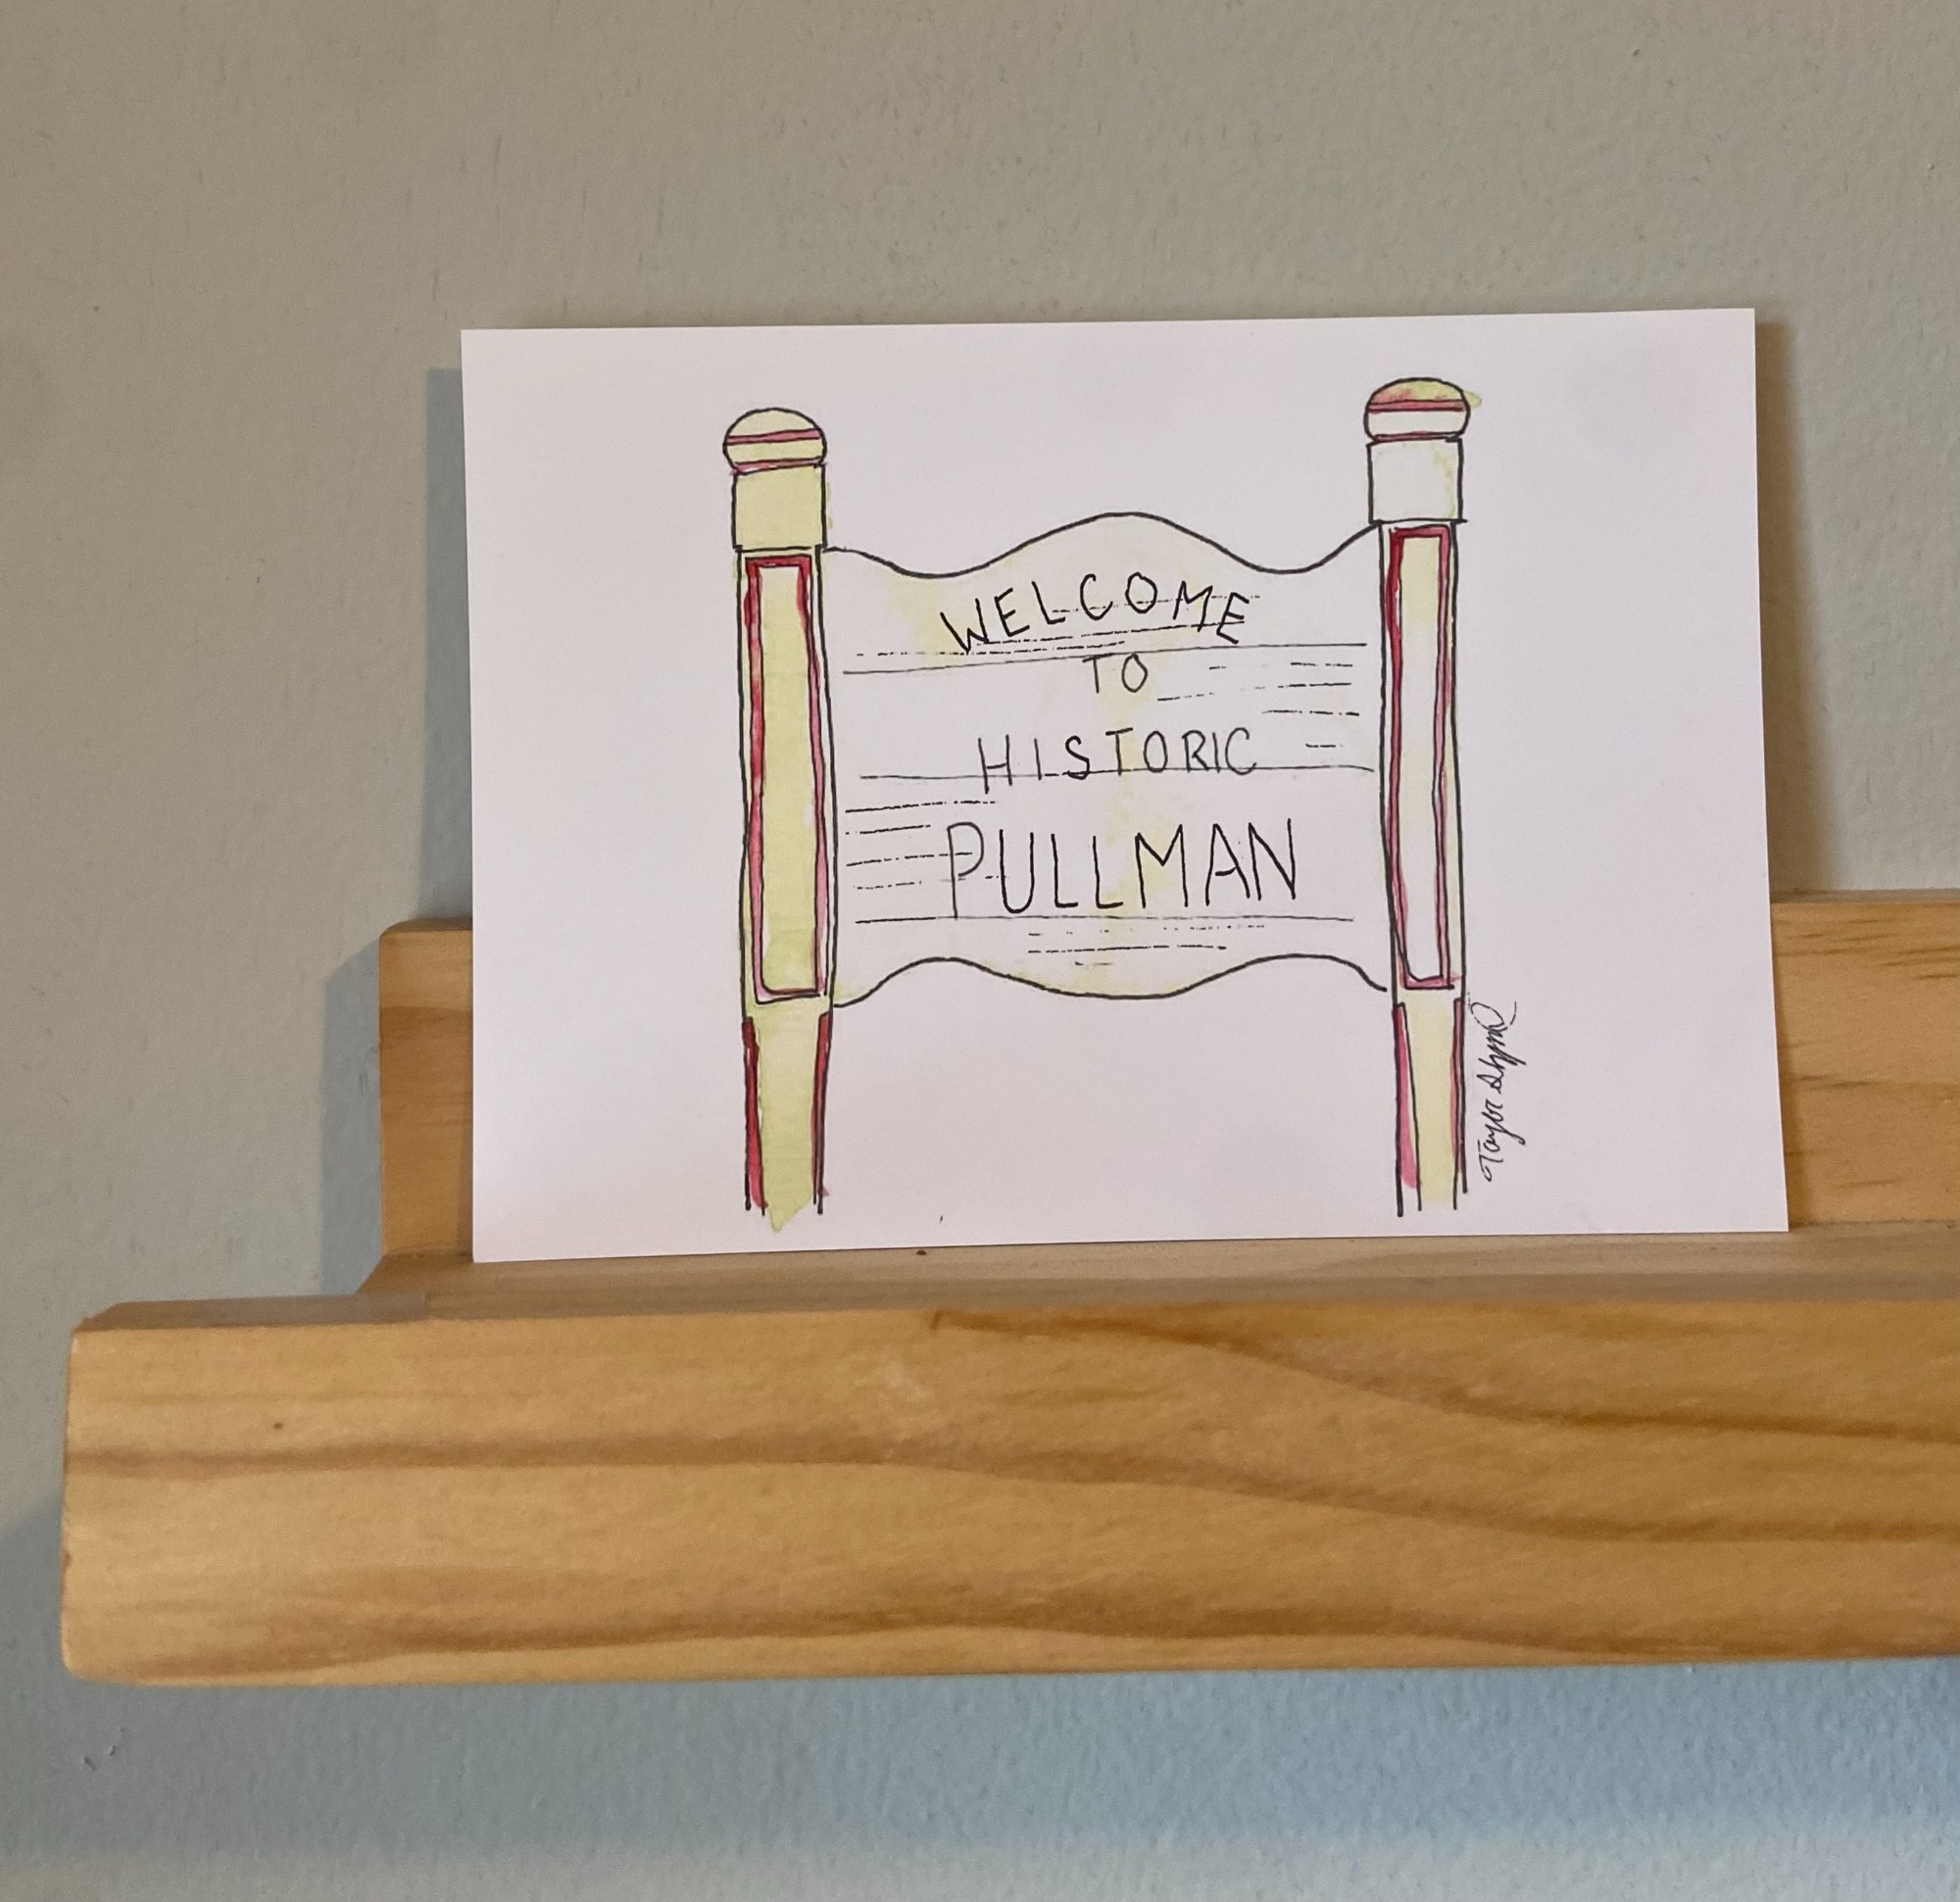 WELCOME
TO
HISTORIC
PULLMAN
Taylor